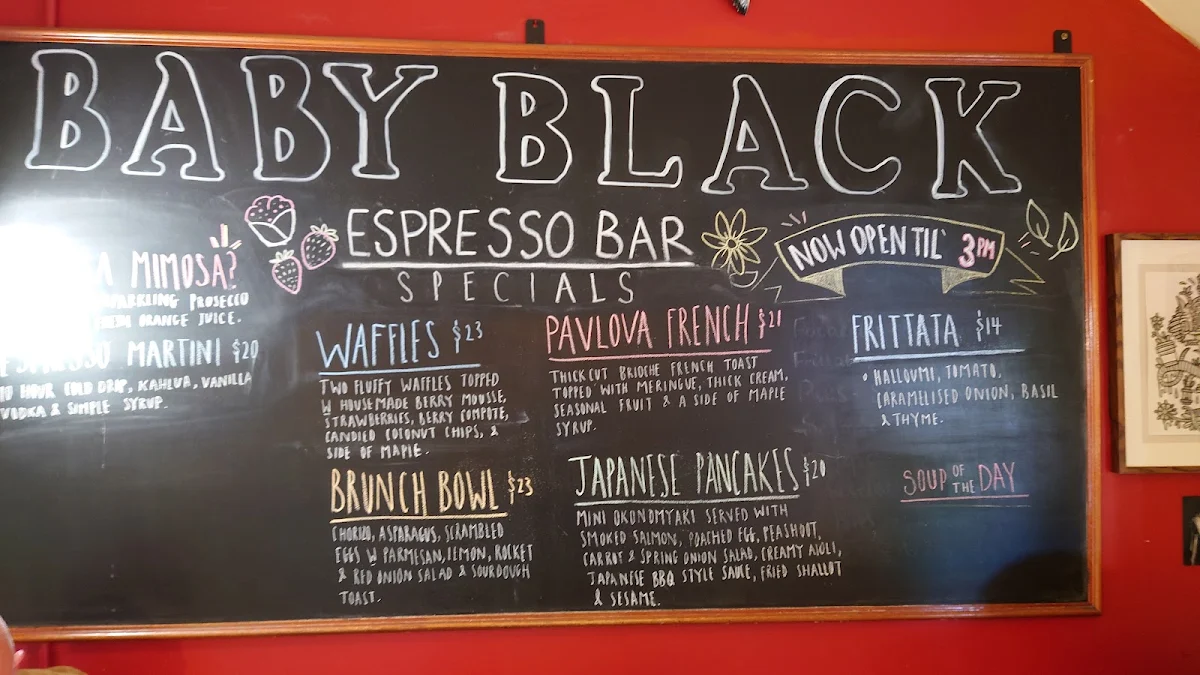 BABY BLACK
ESPRESSO BAR
SPECIALS
NOW OPEN TIL' 3PM
MIMOSA?
SPARKLING PROSECCO
ORANGE JUICE.
ESPRESSO MARTINI $20
HOUR COLD DRIP, KAHLUA, VANILLA
VODKA & SIMPLE SYRUP.
WAFFLES $23
TWO FLUFFY WAFFLES TOPPED
W HOUSEMADE BERRY MOUSSE,
STRAWBERRIES, BERRY COMPOTE,
CANDIED COCONUT CHIPS, &
SIDE OF MAPLE.
BRUNCH BOWL $23
CHORIZO, ASPARAGUS, SCRAMBLED
EGGS W PARMESAN, LEMON, ROCKET
& RED ONION SALAD & SOURDOUGH
TOAST.
PAVLOVA FRENCH $21
THICK CUT BRIOCHE FRENCH TOAST
TOPPED WITH MERINGUE, THICK CREAM,
SEASONAL FRUIT & A SIDE OF MAPLE
SYRUP.
JAPANESE PANCAKES $20
MINI OKONOMYAKI SERVED WITH
SMOKED SALMON, POACHED EGG, PEASHOOT,
CARROT & SPRING ONION SALAD, CREAMY AIOLI,
JAPANESE BBQ STYLE SAUCE, FRIED SHALLOT
& SESAME.
FRITTATA $14
• HALLOUMI, TOMATO,
CARAMELISED ONION, BASIL
& THYME.
SOUP OF THE DAY